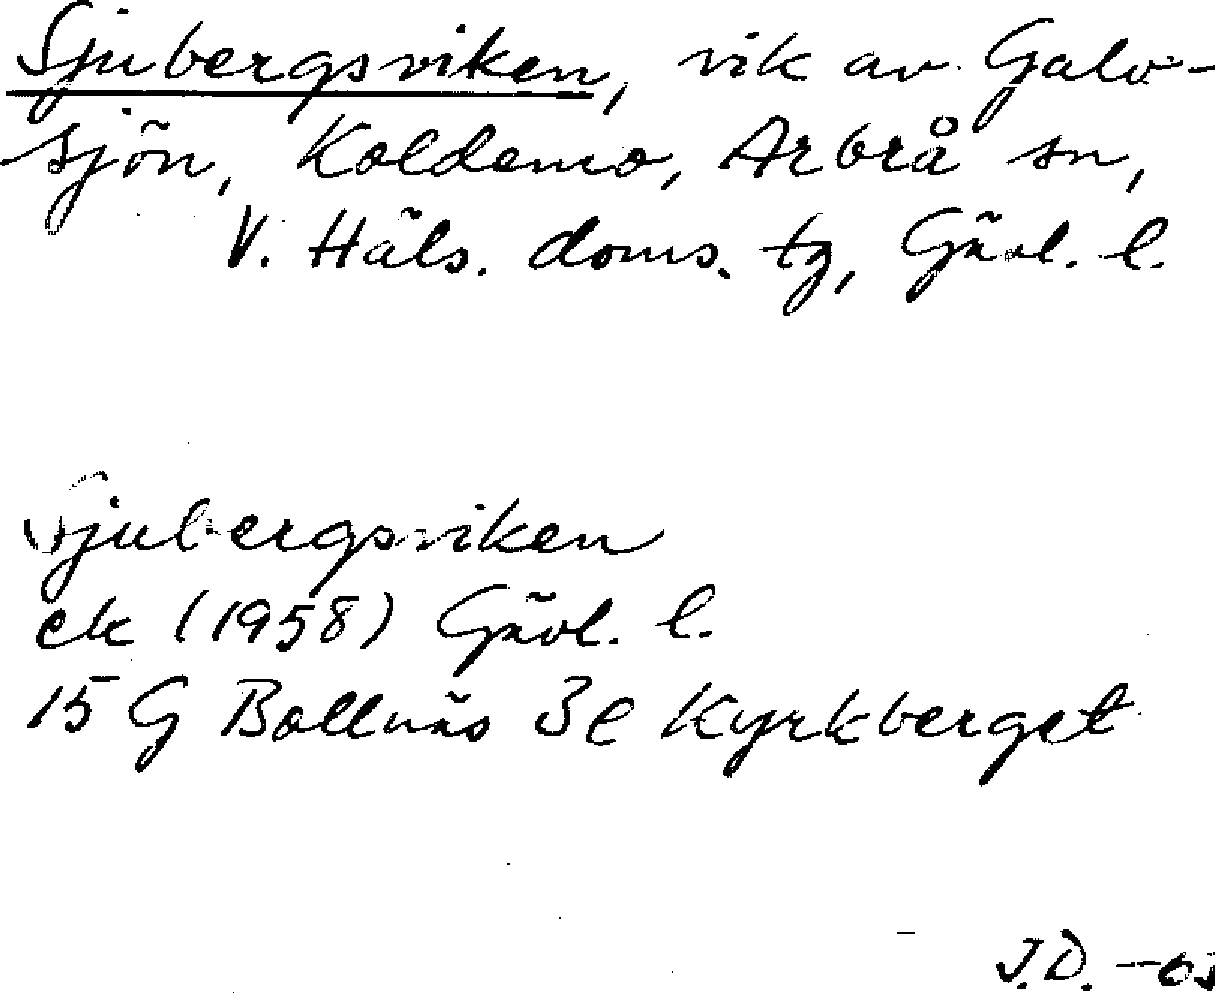 Sjubergsviken, vik av Galv-
sjön, Koldemo, Arbrå sn,
V. Häls. doms. tg, Gävl. l.
Sjubergsviken
ek (1958) Gävl. l.
15 G Bollnäs 3e Kyrkberget
J.D. -